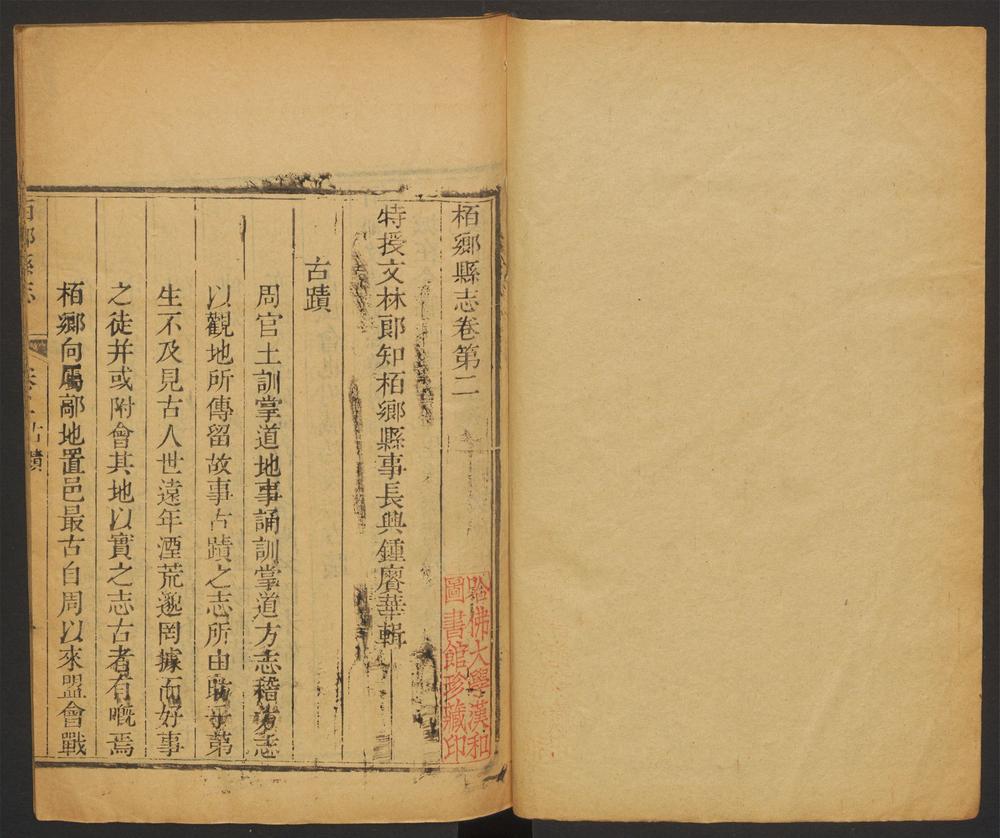 栢鄉縣志卷第二
特授文林郎知栢鄉縣事長興鍾賡華輯
古蹟
周官土訓掌道地事誦訓掌道方志稽方志
以觀地所傳留故事古蹟之志所由昉乎第
生不及見古人世遠年湮荒邈罔據而好事
之徒并或附會其地以實之志古者有嘅焉
栢鄉向屬鄗地置邑最古自周以來盟會戰
栢鄉縣志
卷二古蹟
哈佛大學漢和
圖書館珍藏印